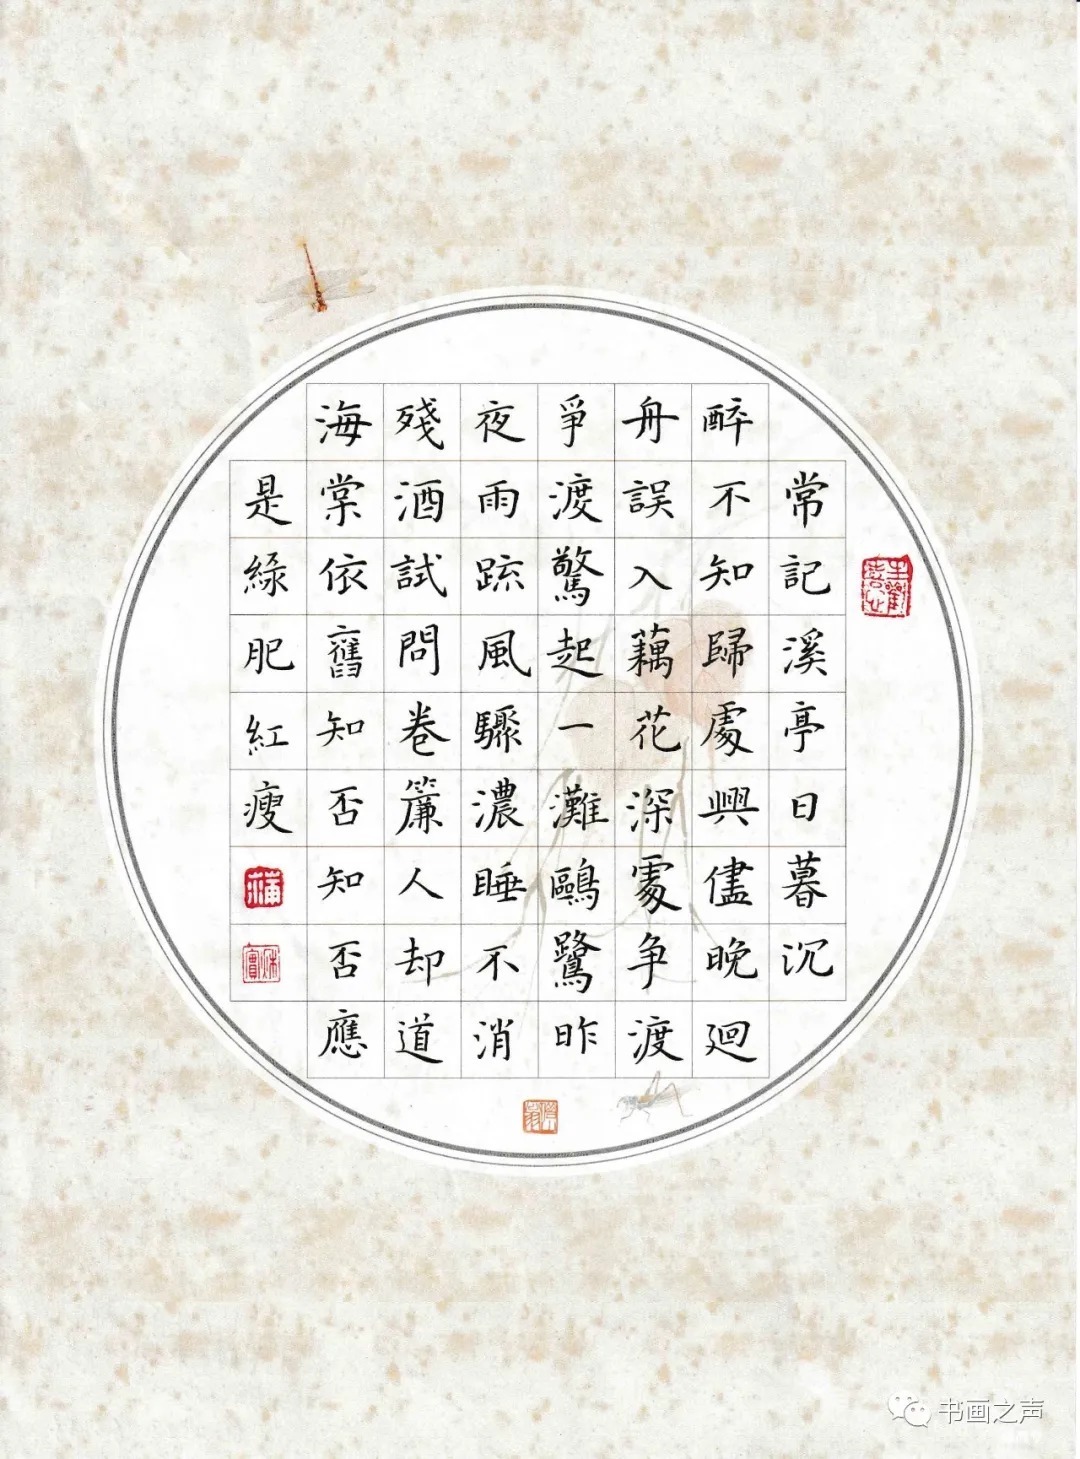 常記溪亭日暮沉
醉不知歸處興儘晚迴
舟誤入藕花深處争渡
爭渡驚起一灘鷗鷺昨
夜雨疏風驟濃睡不消
殘酒試問卷簾人却道
海棠依舊知否知否應
是綠肥紅瘦
书画之声